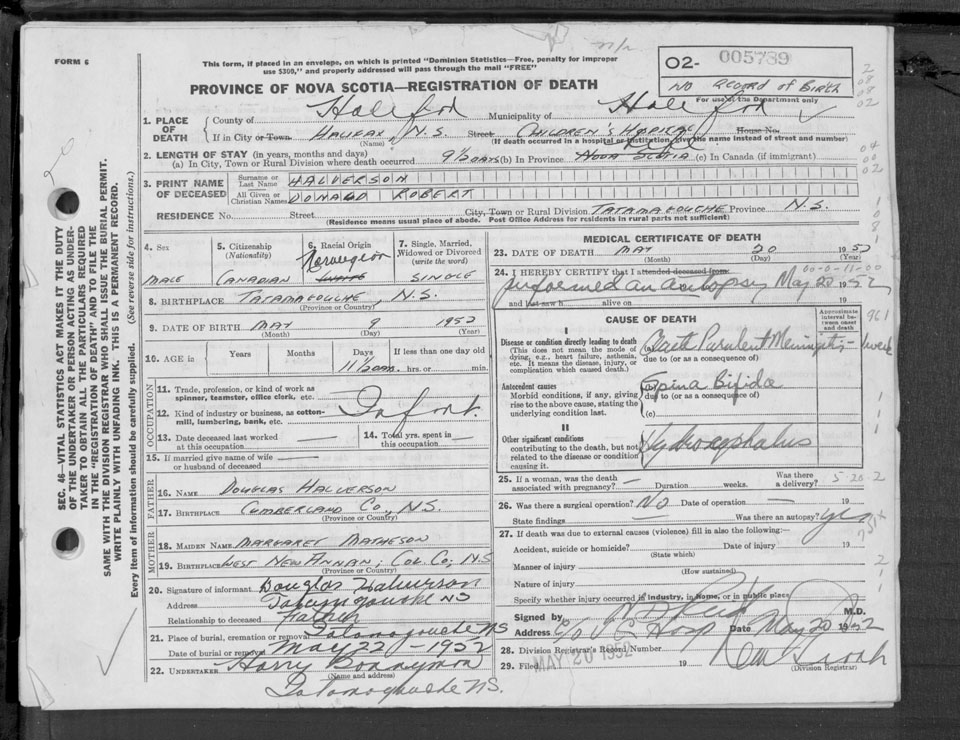 FORM 6
This form, if placed in an envelope, on which is printed "Dominion Statistics—Free, penalty for improper
use $300," and properly addressed will pass through the mail "FREE"
PROVINCE OF NOVA SCOTIA—REGISTRATION OF DEATH
O2- 005739
NO RECORD of Birth
For use of the Department only
1. PLACE OF DEATH
County of Halifax Municipality of Halifax
If in City or Town HALIFAX, N.S. Street CHILDREN'S HOSPITAL House No.
(Name) (If death occurred in a hospital or institution, give the name instead of street and number)
2. LENGTH OF STAY (in years, months and days)
(a) In City, Town or Rural Division where death occurred 9½ DAYS (b) In Province NOVA SCOTIA (c) In Canada (if immigrant)
3. PRINT NAME OF DECEASED
Surname or Last Name HALVERSON
All Given or Christian Names DONALD ROBERT
RESIDENCE No. Street City, Town or Rural Division TATAMAGOUCHE Province N.S.
(Residence means usual place of abode. Post Office Address for residents in rural parts not sufficient)
4. Sex MALE
5. Citizenship (Nationality) CANADIAN
6. Racial Origin Norwegian
7. Single, Married, Widowed or Divorced (write the word) SINGLE
8. BIRTHPLACE TATAMAGOUCHE, N.S.
9. DATE OF BIRTH MAY 9 1952
(Month) (Day) (Year)
10. AGE in Years Months Days If less than one day old
11½ DAYS hrs. or min.
OCCUPATION
11. Trade, profession, or kind of work as spinner, teamster, office clerk, etc.
12. Kind of industry or business, as cotton-mill, lumbering, bank, etc. Infant.
13. Date deceased last worked at this occupation —
14. Total yrs. spent in this occupation —
15. If married give name of wife or husband of deceased —
FATHER
16. NAME DOUGLAS HALVERSON
17. BIRTHPLACE CUMBERLAND CO., N.S.
(Province or Country)
MOTHER
18. MAIDEN NAME MARGARET MATHESON
19. BIRTHPLACE WEST NEW ANNAN, COL. CO; N.S
(Province or Country)
20. Signature of informant Douglas Halverson
Address Tatamagouche NS
Relationship to deceased Father
21. Place of burial, cremation or removal Tatamagouche NS
Date of burial or removal May 22 - 1952
22. UNDERTAKER Harry Bonnyman
(Name and address)
Tatamagouche NS.
MEDICAL CERTIFICATE OF DEATH
23. DATE OF DEATH MAY 20 1952
(Month) (Day) (Year)
24. I HEREBY CERTIFY that I attended deceased from
performed an autopsy May 20 1952
and last saw h alive on 19
CAUSE OF DEATH
Approximate interval between onset and death
I
Disease or condition directly leading to death
(This does not mean the mode of dying, e.g., heart failure, asthenia, etc. It means the disease, injury, or complication which caused death.)
(a) Acute Purulent Meningitis - 1 week
due to (or as a consequence of)
Antecedent causes
Morbid conditions, if any, giving rise to the above cause, stating the underlying condition last.
(b) Spina Bifida
due to (or as a consequence of)
(c)
II
Other significant conditions
contributing to the death, but not related to the disease or condition causing it.
Hydrocephalus
25. If a woman, was the death associated with pregnancy? — Duration weeks. Was there a delivery?
26. Was there a surgical operation? NO Date of operation — 19
State findings — Was there an autopsy? Yes
27. If death was due to external causes (violence) fill in also the following:—
Accident, suicide or homicide? Date of injury 19
(State which)
Manner of injury
(How sustained)
Nature of injury
Specify whether injury occurred in industry, in home, or in public place
Signed by M.D.
Address Date May 20 1952
28. Division Registrar's Record Number
29. Filed MAY 20 1952 19
(Division Registrar)
SEC. 46—VITAL STATISTICS ACT MAKES IT THE DUTY
OF THE UNDERTAKER OR PERSON ACTING AS UNDER-
TAKER TO OBTAIN ALL THE PARTICULARS REQUIRED
IN THE "REGISTRATION OF DEATH" AND TO FILE THE
SAME WITH THE DIVISION REGISTRAR WHO SHALL ISSUE THE BURIAL PERMIT.
WRITE PLAINLY WITH UNFADING INK. THIS IS A PERMANENT RECORD.
Every item of information should be carefully supplied. (See reverse side for instructions.)